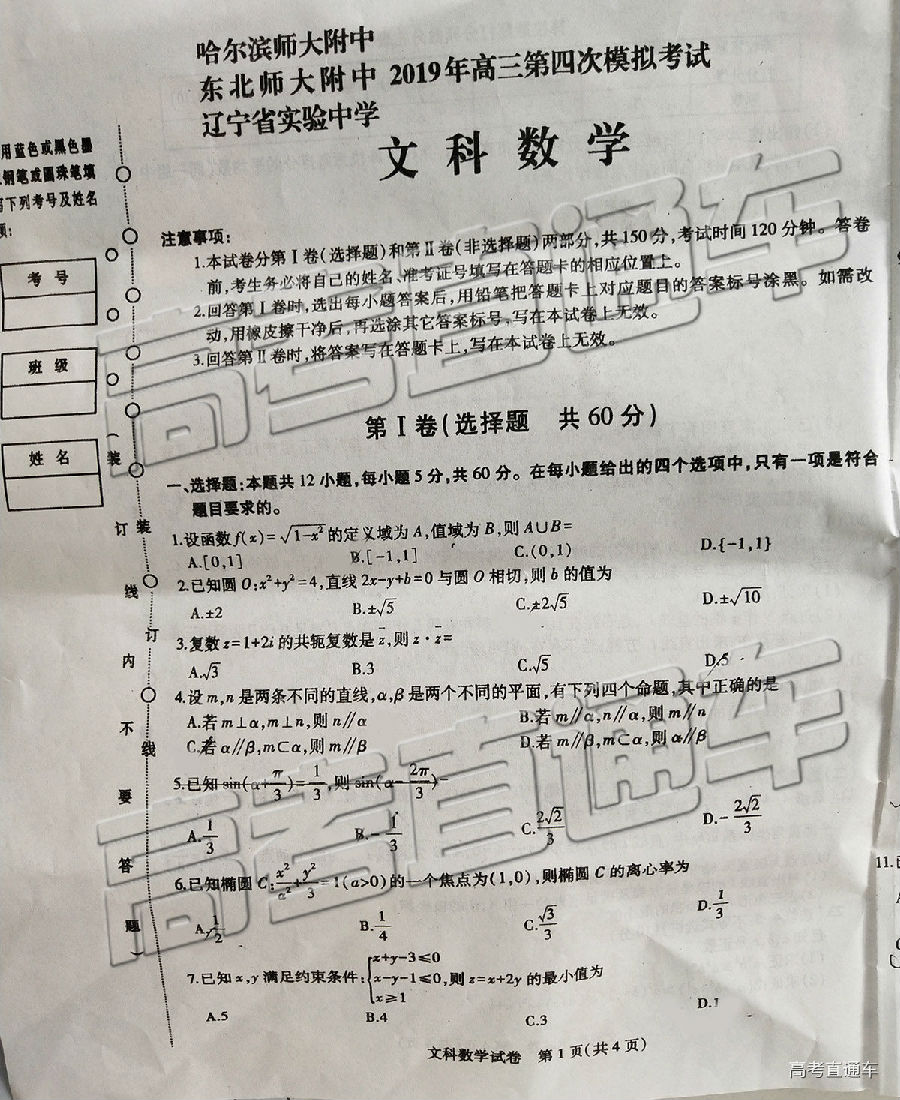 哈尔滨师大附中
东北师大附中 2019年高三第四次模拟考试
辽宁省实验中学
文科数学
用蓝色或黑色墨
钢笔或圆珠笔填
写下列考号及姓名
考号
班级
姓名
装
订
线
内
不
要
答
题
装
订
线
注意事项:
1.本试卷分第Ⅰ卷(选择题)和第Ⅱ卷(非选择题)两部分,共150分,考试时间120分钟。答卷
前,考生务必将自己的姓名、准考证号填写在答题卡的相应位置上。
2.回答第Ⅰ卷时,选出每小题答案后,用铅笔把答题卡上对应题目的答案标号涂黑。如需改
动,用橡皮擦干净后,再选涂其它答案标号,写在本试卷上无效。
3.回答第Ⅱ卷时,将答案写在答题卡上,写在本试卷上无效。
第Ⅰ卷(选择题 共60分)
一、选择题:本题共12小题,每小题5分,共60分。在每小题给出的四个选项中,只有一项是符合
题目要求的。
1.设函数f(x)=√(1-x²)的定义域为A,值域为B,则A∪B=
A.[0,1] B.[-1,1] C.(0,1) D.{-1,1}
2.已知圆O:x²+y²=4,直线2x-y+b=0与圆O相切,则b的值为
A.±2 B.±√5 C.±2√5 D.±√10
3.复数z=1+2i的共轭复数是z̄,则z·z̄=
A.√3 B.3 C.√5 D.5
4.设m,n是两条不同的直线,α,β是两个不同的平面,有下列四个命题,其中正确的是
A.若m⊥α,m⊥n,则n∥α B.若m∥α,n∥α,则m∥n
C.若α∥β,m⊂α,则m∥β D.若m∥β,m⊂α,则α∥β
5.已知sin(α+π/3)=1/3,则sin(α-2π/3)=
A.1/3 B.-1/3 C.2√2/3 D.-2√2/3
6.已知椭圆C:x²/a²+y²/3=1(a>0)的一个焦点为(1,0),则椭圆C的离心率为
A.1/2 B.1/4 C.√3/3 D.1/3
7.已知x,y满足约束条件:{x+y-3≤0
x-y-1≤0,则z=x+2y的最小值为
x≥1
A.5 B.4 C.3 D.1
文科数学试卷 第1页(共4页)
11.
高考直通车
高考直通车
高考直通车